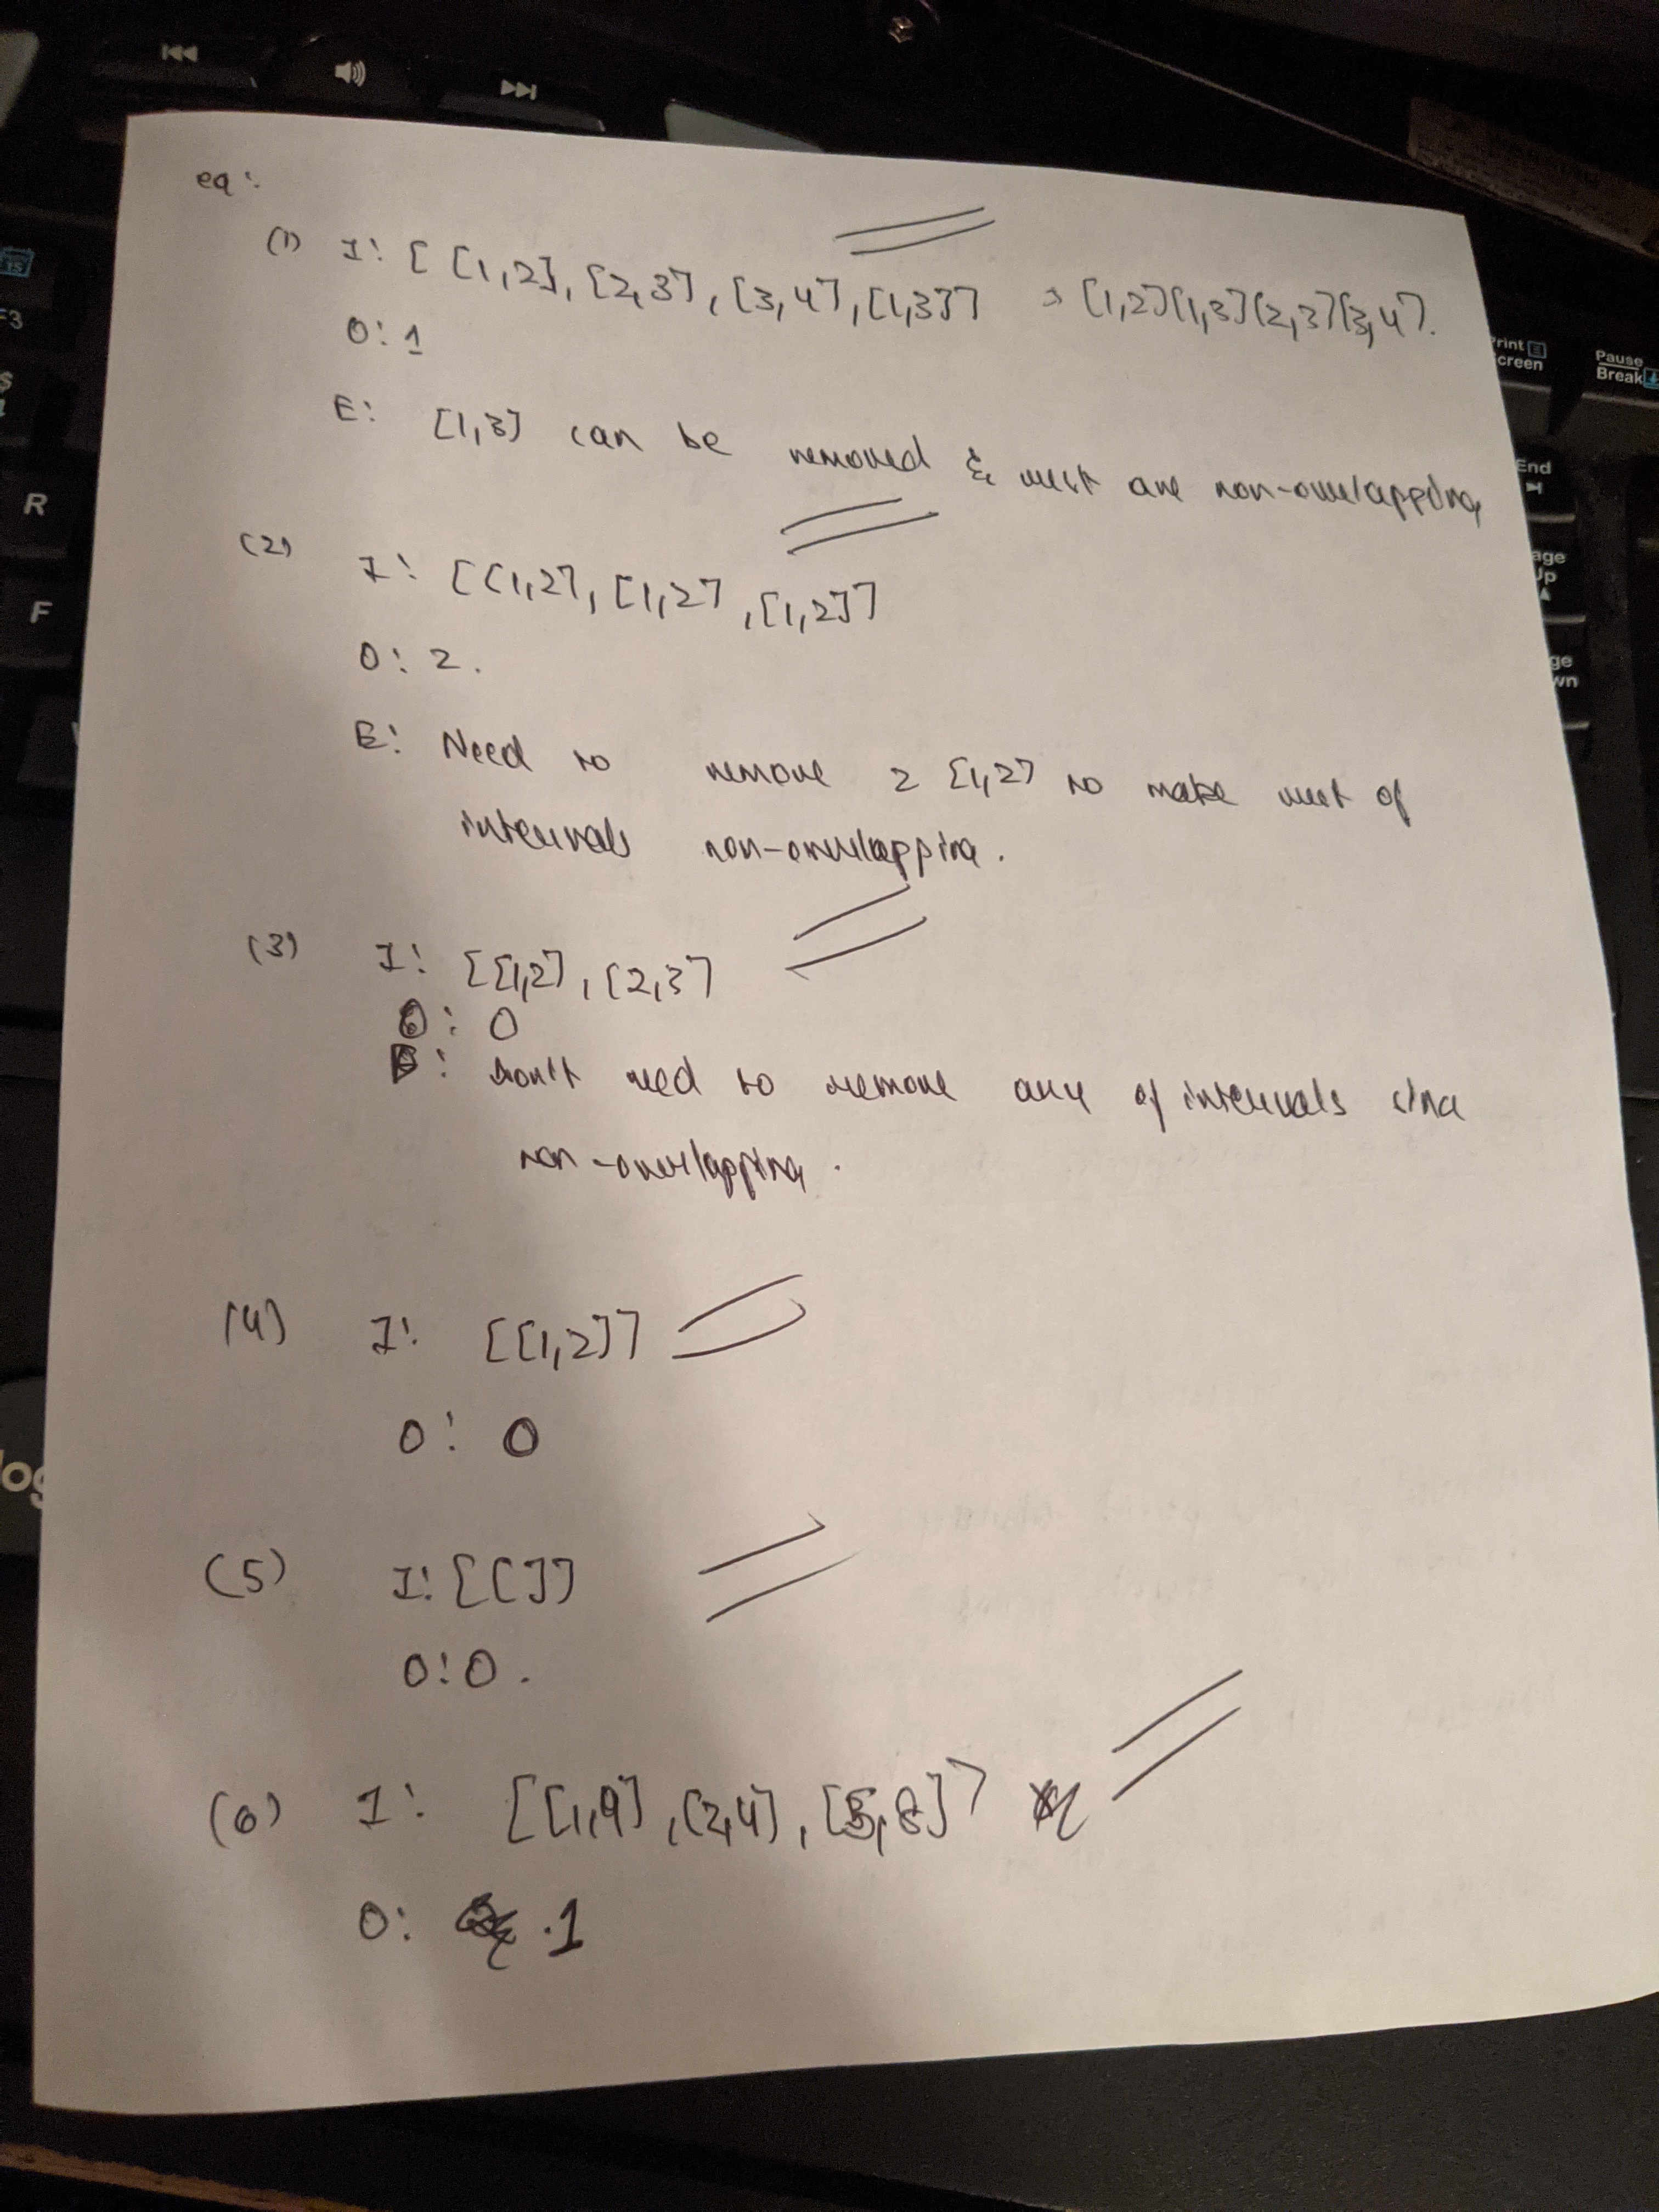 eg:
(1) I: [ [1,2], [2,3], [3,4], [1,3]] → [1,2][1,3][2,3][3,4].
O: 1
E: [1,3] can be removed & rest are non-overlapping
(2) I: [[1,2], [1,2], [1,2]]
O: 2.
E: Need to remove 2 [1,2] to make rest of
intervals non-overlapping.
(3) I: [[1,2], [2,3]
O: 0
E: Don't need to remove any of intervals since
non-overlapping.
(4) I: [[1,2]]
O: 0
(5) I: [[]]
O: 0.
(6) I: [[1,9], [2,4], [5,8]]
O: 1
Print
Screen
Pause
Break
End
R
F
F3